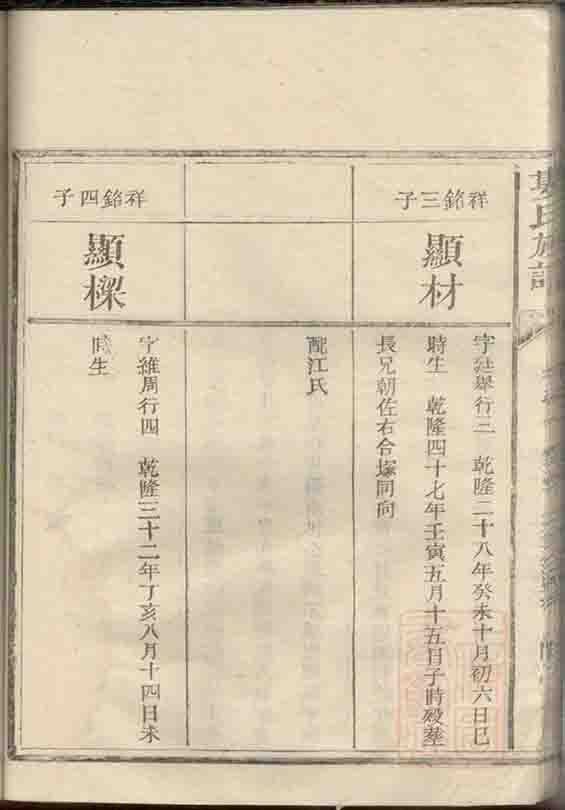 祥銘三子
顯材
字㐰舉行三　乾隆二十八年癸未十月初六日巳
時生　乾隆四十七年壬寅五月十五日子時殁葬
長兄朝佐右合塚同向
配江氏
祥銘四子
顯樑
字維周行四　乾隆三十二年丁亥八月十四日未
時生